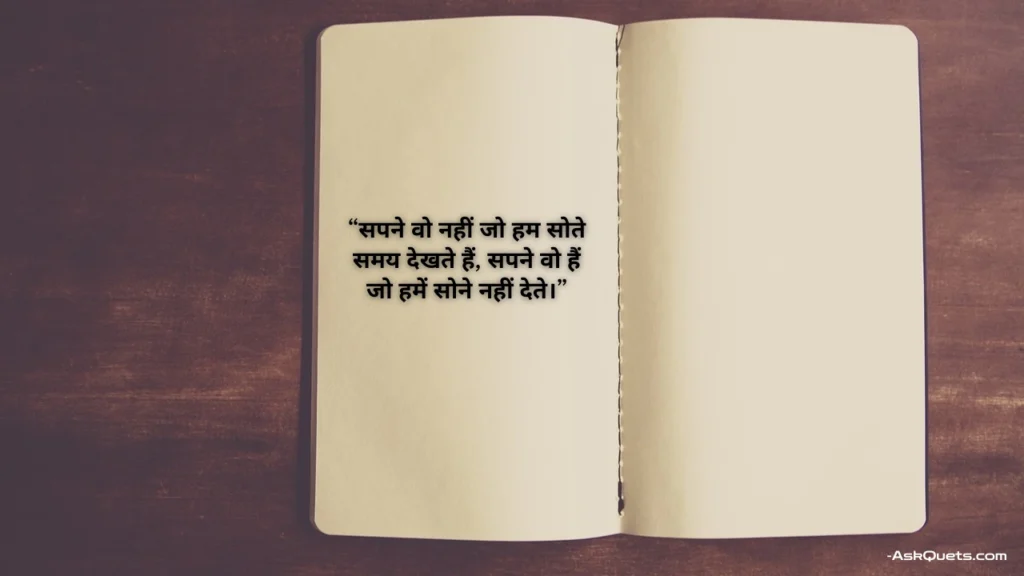 “सपने वो नहीं जो हम सोते
समय देखते हैं, सपने वो हैं
जो हमें सोने नहीं देते।”
-AskQuets.com